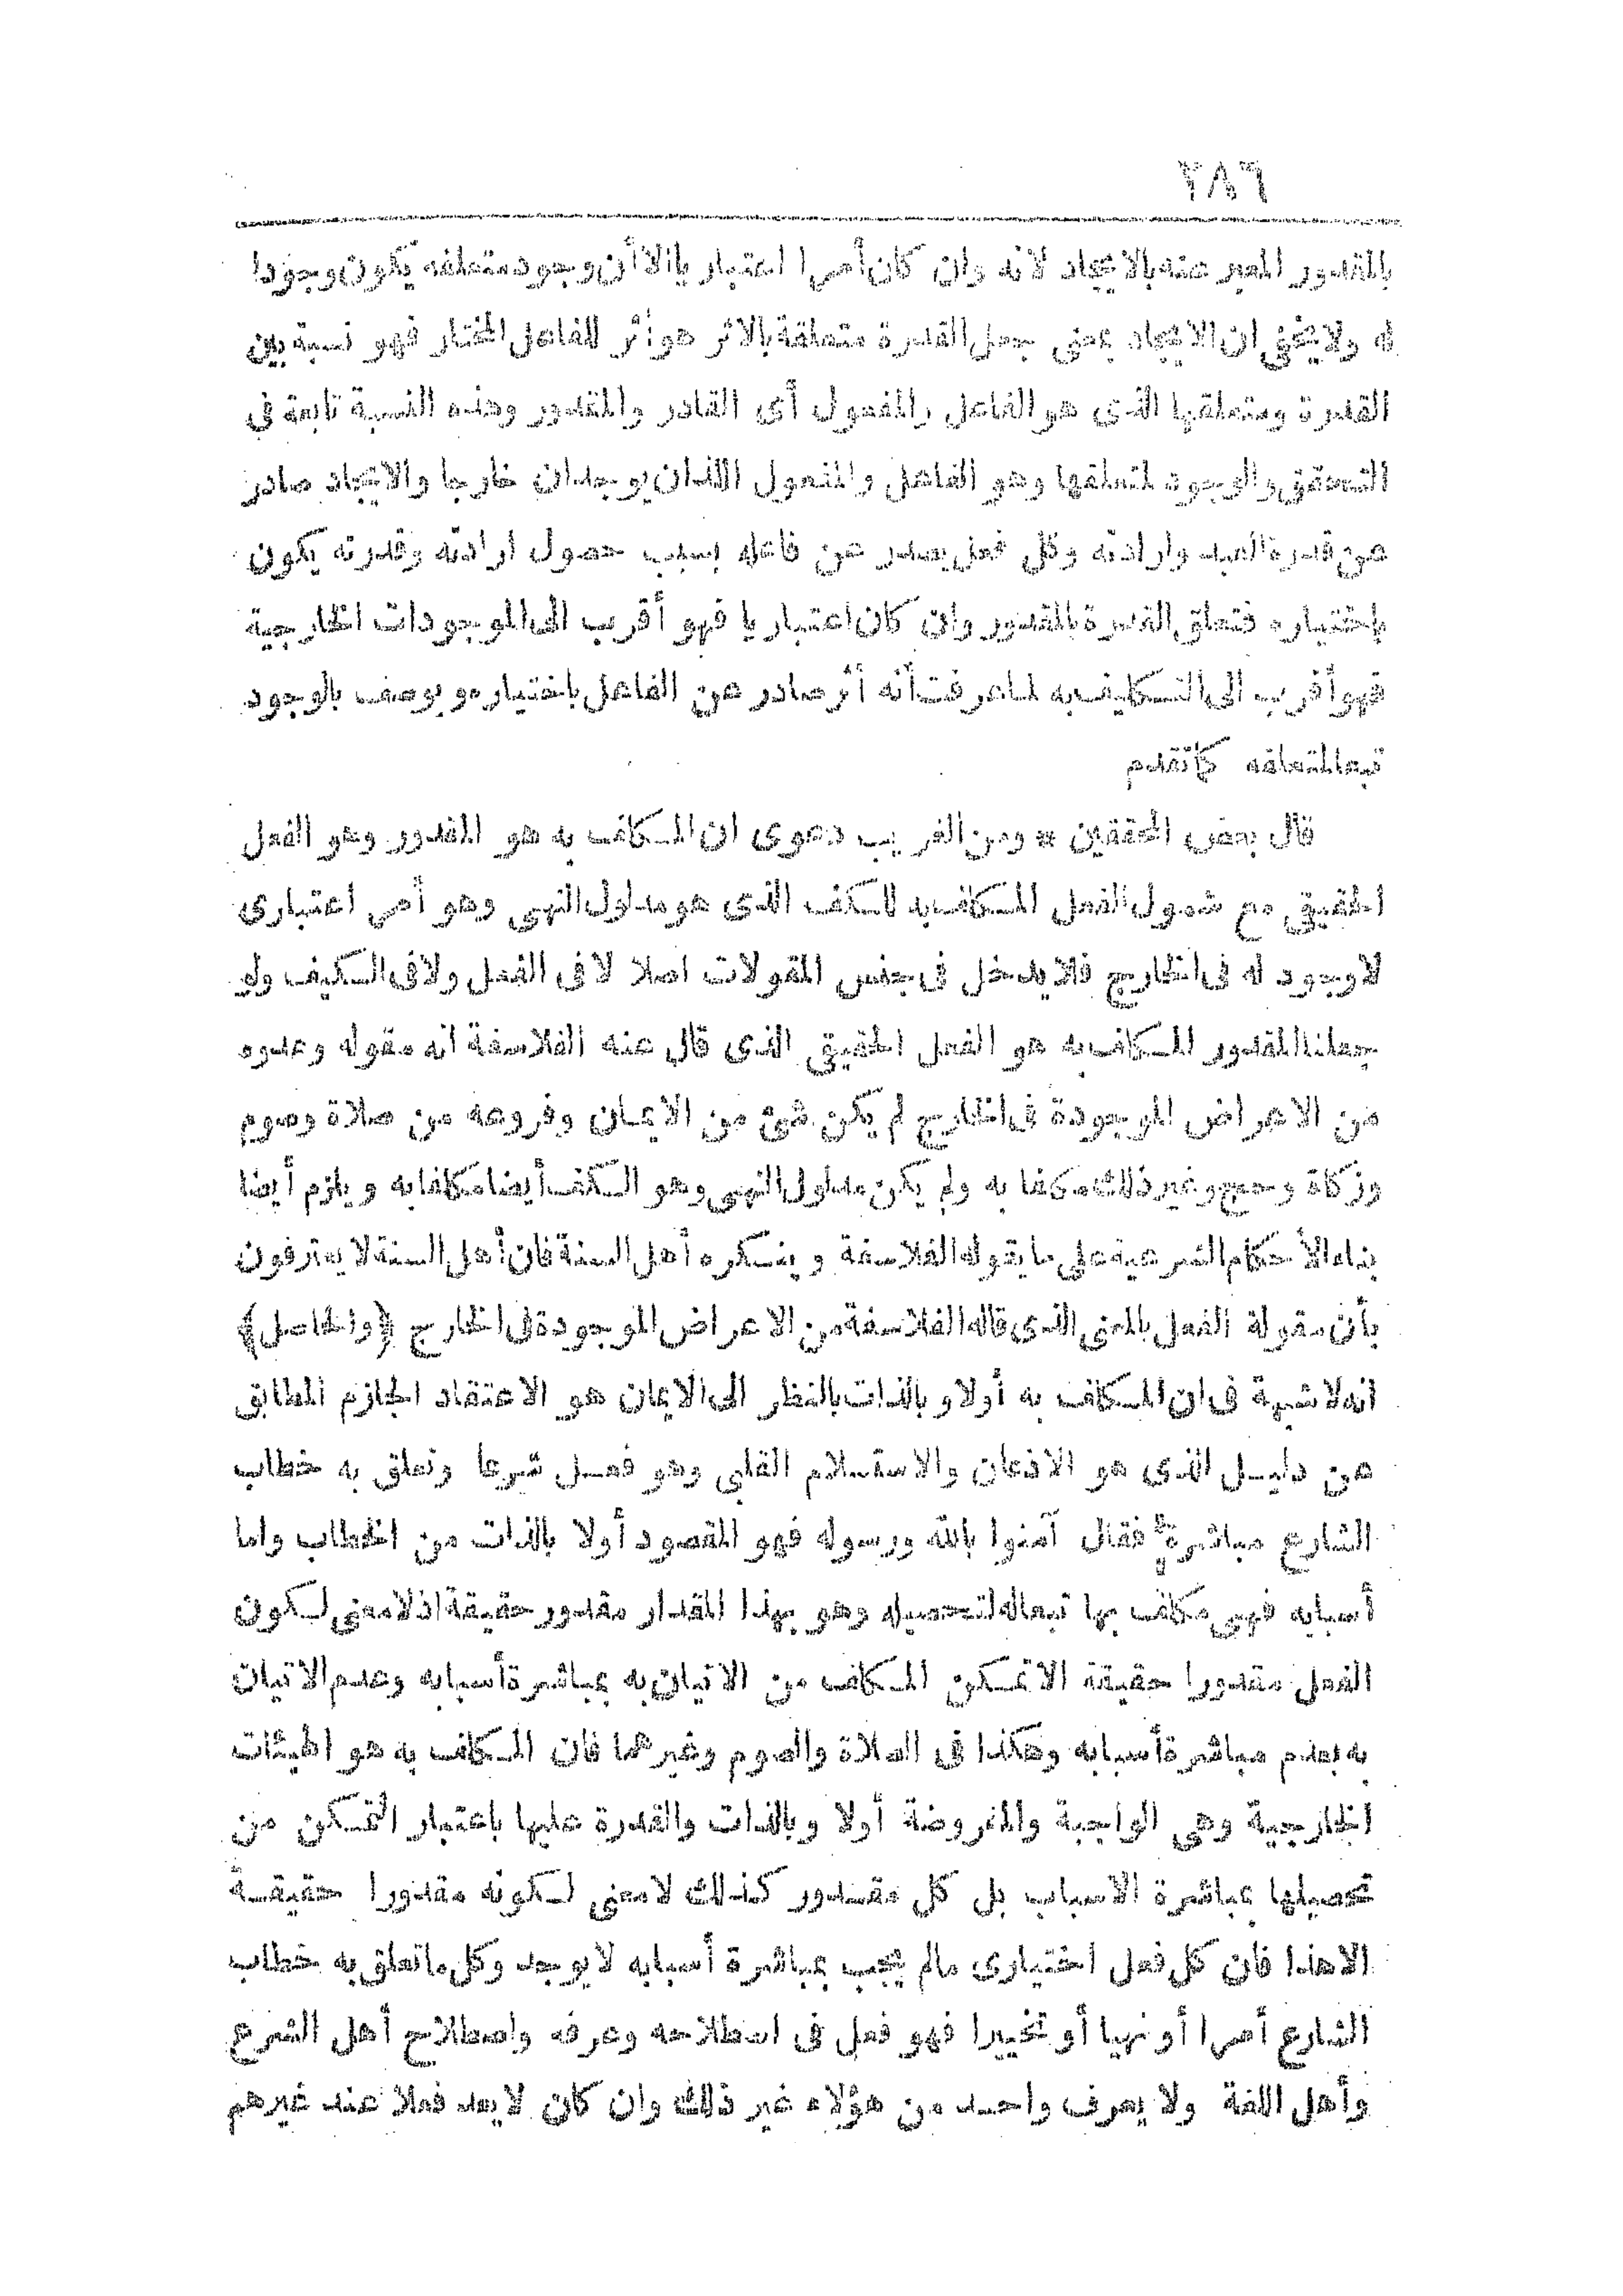 ٢٨٦
بالمقدور المعبر عنه بالايجاد لانه وان كان أمرا اعتباريا الا أن وجود متعلقه يكون وجودا
له ولا يخفى ان الايجاد بمعنى جعل القدرة متعلقة بالاثر هو أثر للفاعل المختار فهو نسبة بين
القدرة ومتعلقها الذى هو الفاعل والمفعول أى القادر والمقدور وهذه النسبة تابعة فى
التحقق والوجود لمتعلقها وهو الفاعل والمفعول اللذان يوجدان خارجا والايجاد صادر
عن قدرة العبد وارادته وكل فعل يصدر عن فاعله بسبب حصول ارادته وقدرته يكون
باختياره فتعلق القدرة بالمقدور وان كان اعتباريا فهو أقرب الى الموجودات الخارجية
فهو أقرب الى التكليف به لما عرفت أنه أثر صادر عن الفاعل باختياره ويوصف بالوجود
تبعا لمتعلقه كما تقدم
قال بعض المحققين * ومن الغريب دعوى ان المكلف به هو المقدور وهو الفعل
الحقيقى مع شمول الفعل المكلف به للكف الذى هو مدلول النهى وهو أمر اعتبارى
لا وجود له فى الخارج فلا يدخل فى جنس المقولات اصلا لا فى الفعل ولا فى الكيف ولو
جعلنا المقدور المكلف به هو الفعل الحقيقى الذى قال عنه الفلاسفة انه مقوله وعدوه
من الاعراض الموجودة فى الخارج لم يكن شئ من الايمان وفروعه من صلاة وصوم
وزكاة وحج وغير ذلك مكلفا به ولم يكن مدلول النهى وهو الكف أيضا مكلفا به ويلزم أيضا
بناء الأحكام الشرعية على ما يقوله الفلاسفة وينكره أهل السنة فان أهل السنة لا يعترفون
بأن مقولة الفعل بالمعنى الذى قاله الفلاسفة من الاعراض الموجودة فى الخارج ﴿والحاصل﴾
انه لا شبهة فى ان المكلف به أولا وبالذات بالنظر الى الايمان هو الاعتقاد الجازم المطابق
عن دليل الذى هو الاذعان والاستسلام القلبى وهو فعل شرعا وتعلق به خطاب
الشارع مباشرة فقال آمنوا بالله ورسوله فهو المقصود أولا بالذات من الخطاب واما
أسبابه فهى مكلف بها تبعا له لتحصيله وهو بهذا المقدار مقدور حقيقة اذ لا معنى لكون
الفعل مقدورا حقيقة الا تمكن المكلف من الاتيان به بمباشرة أسبابه وعدم الاتيان
به بعدم مباشرة أسبابه وهكذا فى الصلاة والصوم وغيرهما فان المكلف به هو الهيئات
الخارجية وهى الواجبة والمفروضة أولا وبالذات والقدرة عليها باعتبار التمكن من
تحصيلها بمباشرة الاسباب بل كل مقدور كذلك لا معنى لكونه مقدورا حقيقة
الا هذا فان كل فعل اختيارى مالم يجب بمباشرة أسبابه لا يوجد وكل ما تعلق به خطاب
الشارع أمرا أو نهيا أو تخييرا فهو فعل فى اصطلاحه وعرفه واصطلاح أهل الشرع
وأهل اللغة ولا يعرف واحد من هؤلاء غير ذلك وان كان لا يعد فعلا عند غيرهم